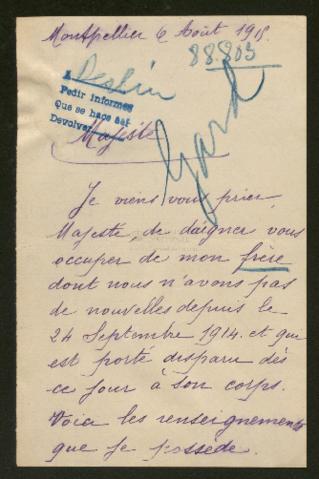 Montpellier 6 Août 1915.
88.803
A
Pedir informes
Que se haga saber
Devolver
Gard
Majesté
Je viens vous prier,
Majesté de daigner vous
occuper de mon frère
dont nous n'avons pas
de nouvelles depuis le
24 Septembre 1914. et qui
est porté disparu dès
ce jour à son corps.
Voici les renseignements
que je possède.